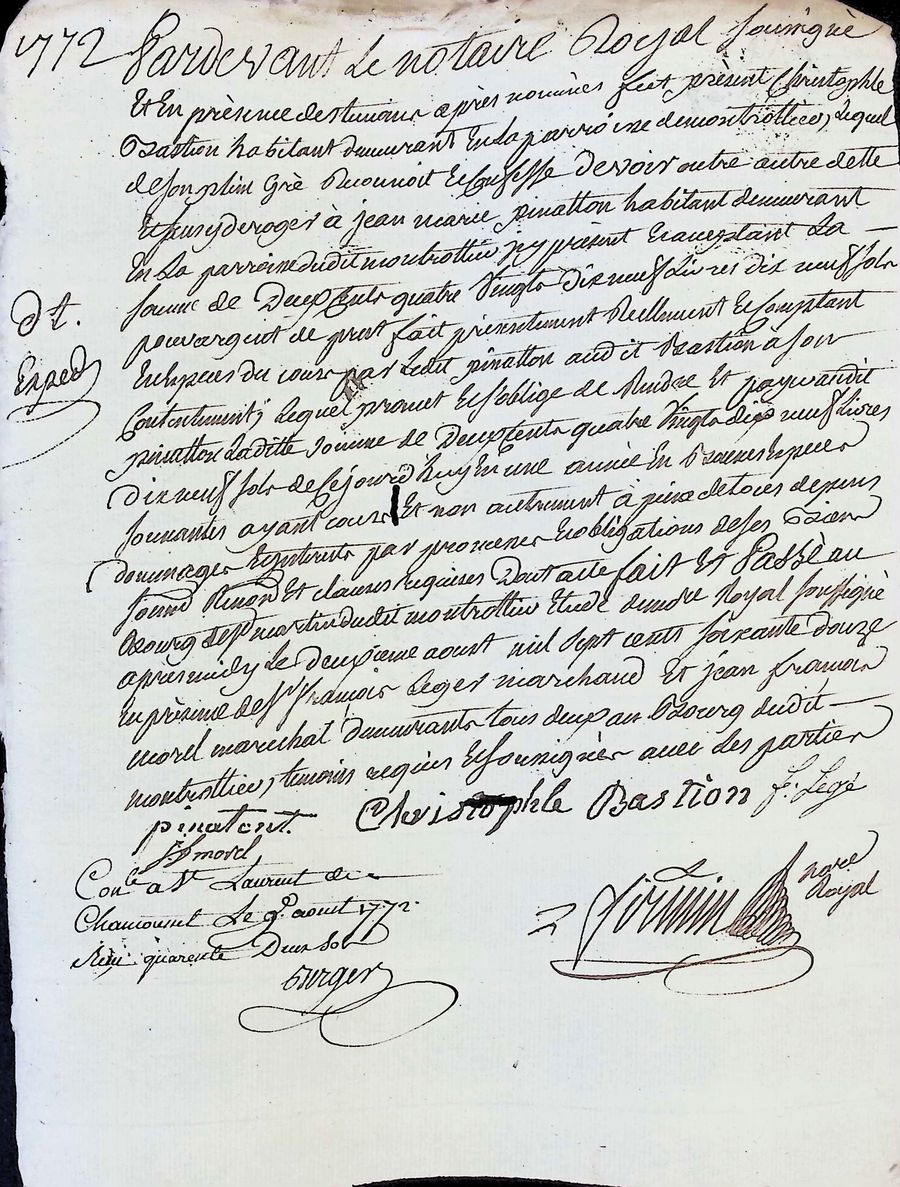 1772 Pardevant Le notaire Royal soussigné
Et En présence des temoins après nommés fut présent Christophle
Bastion habitant demeurant En La parroisse de montrottier, Lequel
de son plin Gré Reconnoit Et Confesse devoir outre autre dette
Et sans y deroger à jean marie pinatton habitant demeurant
En La parroisse dudit montrottier jcy present Et acceptant La
somme de Deux Cents quatre Vingts Dix neuf Livres dix neuf sols
pour argent de pret fait présentement Reellement Et Comptant
En Especes du cours par Ledit pinatton audit Bastion à son
Contentement; Lequel promet Et s'oblige de Rendre Et payer audit
pinatton Laditte somme de Deux Cents quatre Vingts dix neuf Livres
Dix neuf sols de Ce jourd'huy En une année En Bonnes Especes
sonnantes ayant cours Et non autrement à peine de tous depens
dommages Et interets par promesses Et obligations de ses Biens
soumis Renon Et clauses requises Dont acte fait Et Passé au
Bourg de st martin dudit montrottier Etude dunore Royal soussigné
après midy Le Deuxieme aoust mil sept cents soixante douze
En présence de sr françois Leger marchand Et jean françois
morel marechal demeurants tous deux au Bourg dudit
montrottier, temoins requis Et soussignés avec Les parties
pinatont. Christophle Bastion f. Legé
J f morel
Conlé a St Laurent de
Chamousset Le 9e aout 1772.
Reçu quarente Deux sols
Burger
Dt.
Exped
nore
Royal